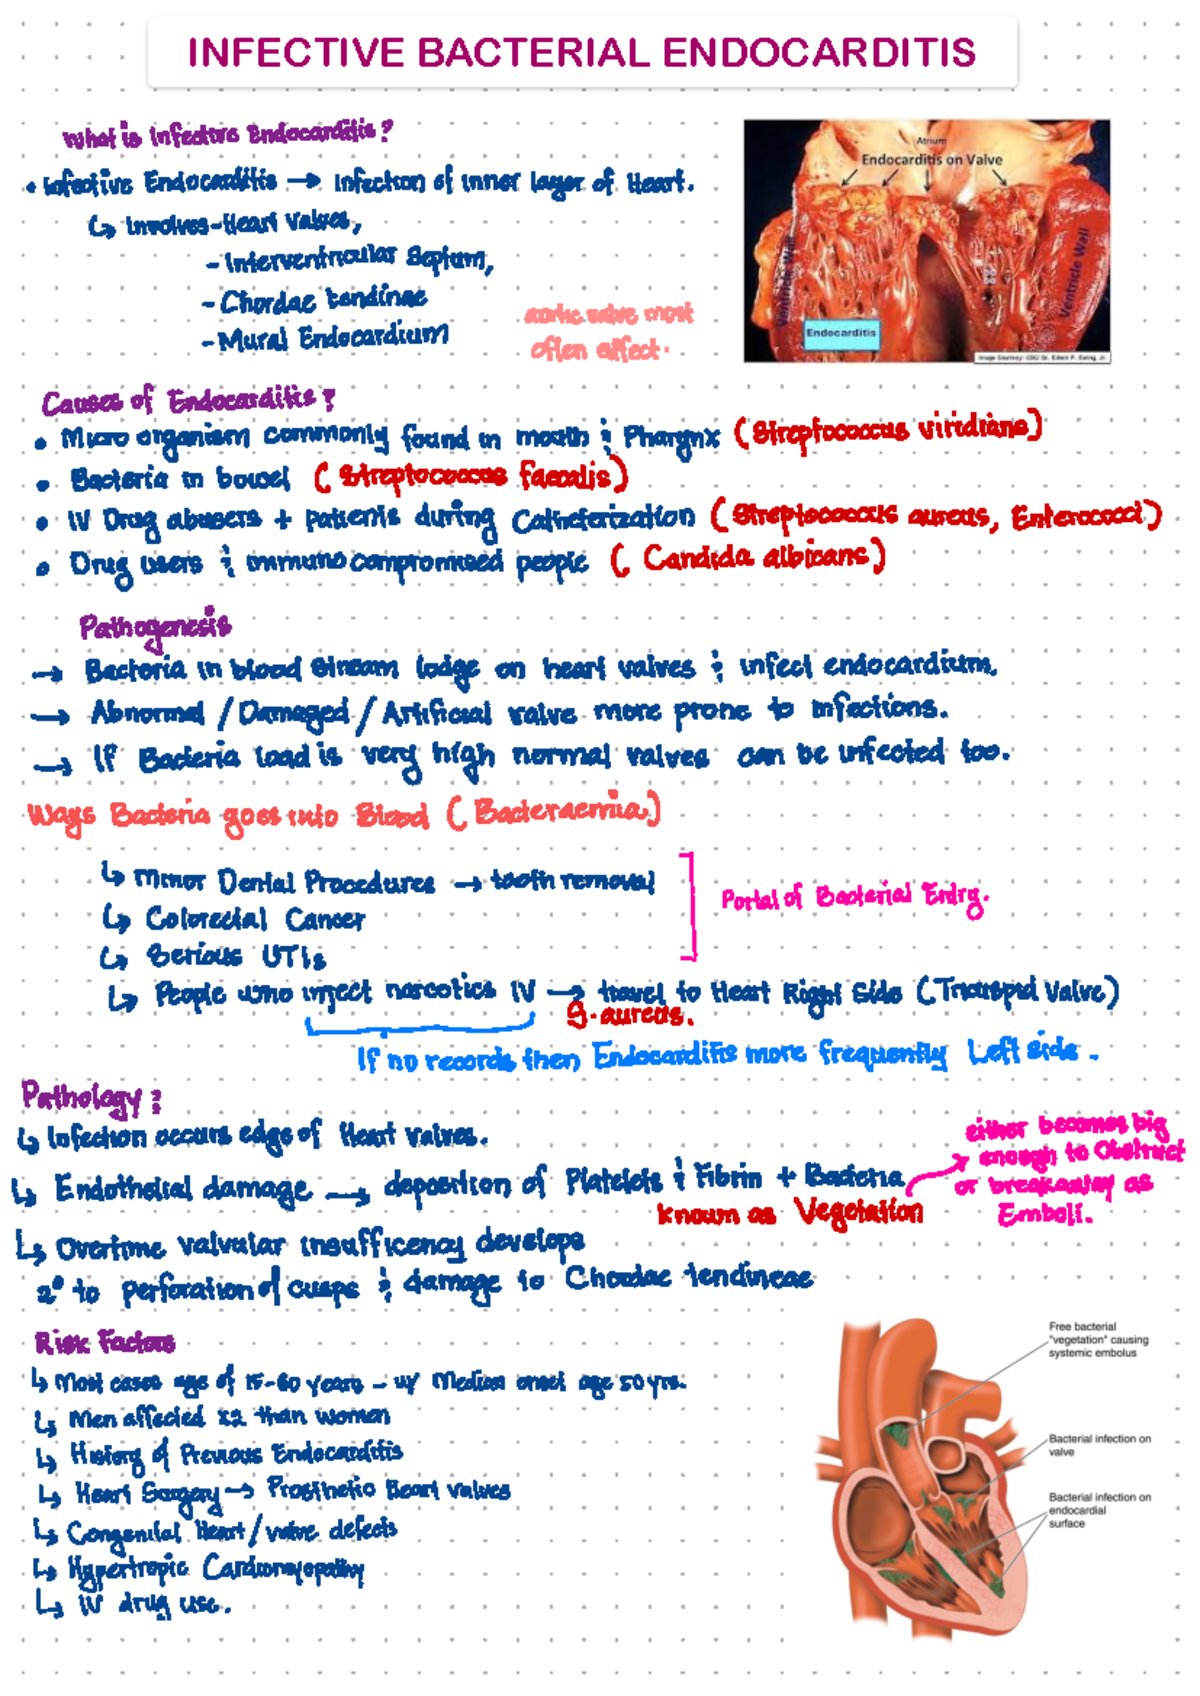 INFECTIVE BACTERIAL ENDOCARDITIS
What is Infective Endocarditis?
• Infective Endocarditis → Infection of inner layer of Heart.
↳ Involves - Heart Valves,
- Interventricular Septum,
- Chordae tendinae
- Mural Endocardium
aortic valve most
often affect.
Atrium
Endocarditis on Valve
Ventricle Wall
Ventricle Wall
Endocarditis
Image Courtesy: CDC/ Dr. Edwin P. Ewing, Jr.
Causes of Endocarditis?
• Micro organism commonly found in mouth & Pharynx (Streptococcus viridians)
• Bacteria in bowel (Streptococcus faecalis)
• IV Drug abusers + patients during Catheterization (Streptococcus aureus, Enterococci)
• Drug users & immuno compromised people (Candida albicans)
Pathogenesis
→ Bacteria in blood stream lodge on heart valves & infect endocardium.
→ Abnormal / Damaged / Artificial valve more prone to infections.
→ If Bacteria load is very high normal valves can be infected too.
Ways Bacteria goes into Blood (Bacteraemia)
↳ Minor Dental Procedures → tooth removal
↳ Colorectal Cancer
↳ Serious UTIs
Portal of Bacterial Entry.
↳ People who inject narcotics IV → travel to Heart Right Side (Tricuspid Valve)
S. aureus.
If no records then Endocarditis more frequently Left side.
Pathology?
↳ Infection occurs edge of Heart valves.
↳ Endothelial damage → deposition of Platelets & Fibrin + Bacteria
known as Vegetation
either becomes big
enough to Obstruct
or breakaway as
Emboli.
↳ Overtime valvular insufficency develops
2° to perforation of cusps & damage to Chordae tendineae
Risk Factors
↳ Most cases age of 15-60 years - w/ Median onset age 50 yrs.
↳ Men affected x2 than women
↳ History of Previous Endocarditis
↳ Heart Surgery → Prosthetic Heart valves
↳ Congenital Heart / valve defects
↳ Hypertropic Cardiomyopathy
↳ IV drug use.
Free bacterial
"vegetation" causing
systemic embolus
Bacterial infection on
valve
Bacterial infection on
endocardial
surface